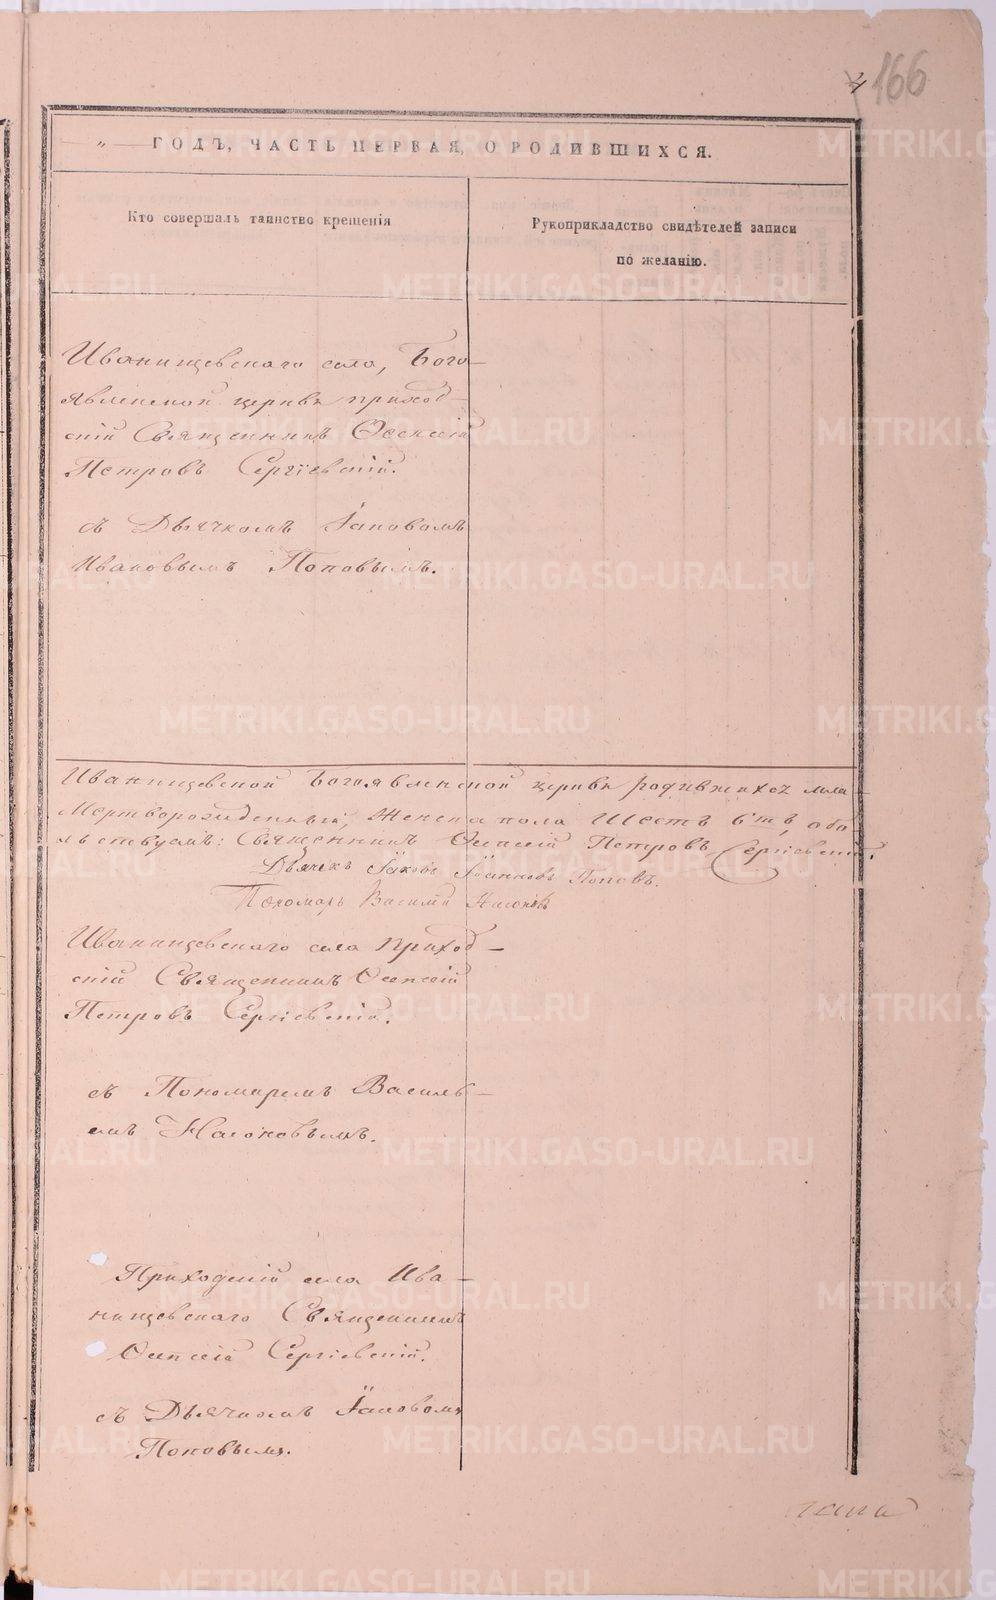 166
" ГОДЪ, ЧАСТЬ ПЕРВАЯ, О РОДИВШИХСЯ.
Кто совершалъ таинство крещенія
Рукоприкладство свидѣтелей записи
по желанію.
Иванищевскаго села, Бого-
явленской церкви приход-
скій Священникъ
Петровъ Сергіевскій.
съ Дьячкомъ Іаковомъ
Ивановымъ Поповымъ.
Иванищевской Богоявленской церкви родившихся
Мертворожденный, Женска пола Шесть
Священникъ Петровъ Сергіевскій.
Дьячекъ Іаковъ Іоанновъ Поповъ.
Пономарь Василій
Иванищевскаго села приход-
скій Священникъ
Петровъ Сергіевскій.
съ Пономаремъ Василь-
емъ
Приходскій села Ива-
нищевскаго Священникъ
Сергіевскій.
съ Дьячкомъ Іаковомъ
Поповымъ.
METRIKI.GASO-URAL.RU